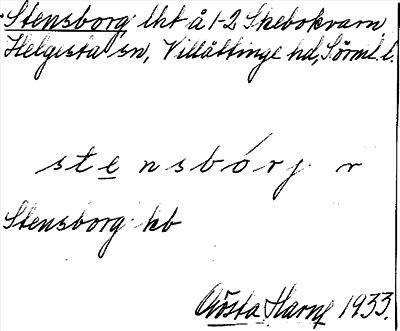 Stensborg lht å 1-2 Skebokvarn,
Helgesta sn, Villåttinge hd, Sörml. l.
stensbórj r
Stensborg kb
Gösta Harne 1933.